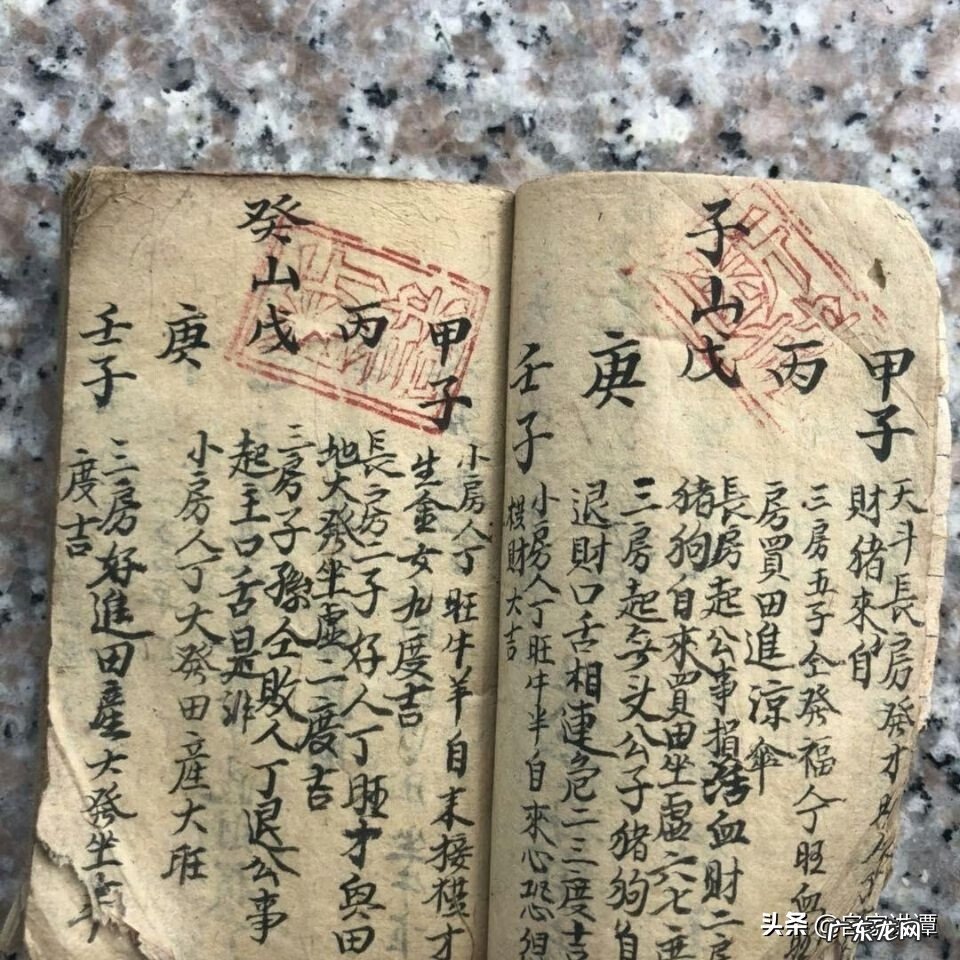 子山
甲子
丙
戊
庚
壬子
天斗長房癸才
財猪來自
三房五子仝發福人丁旺血
房買田進涼傘
長房起公事損
血財二
猪狗自來買田坐虛六七度
三房起
头公子猪狗自
退財口舌相連
二三度吉
小房人丁旺牛半自來心恐
財大吉
癸山
甲子
丙
戊
庚
壬子
小房人丁旺牛羊自来接横才
生金女九度吉
長房二子好人丁旺才與田
地大發坐虛二度吉
三房子孫仝敗人丁退公事
起主口舌是非
小房人丁大發田産大旺
三房好進田産大發坐
度吉
头条
广东龙网